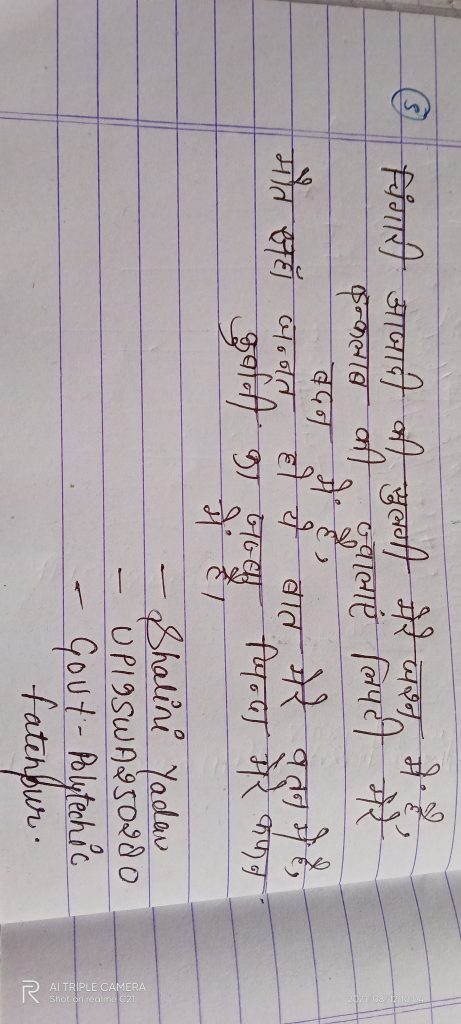 5
चिंगारी आजादी की सुलगी मेरे जश्न में है,
इन्कलाब की ज्वालाएं लिपटी मेरे
बदन में है,
मौत जहां जन्नत हो ये बात मेरे वतन में है,
कुर्बानी का जज्बा जिन्दा मेरे कफन
में है।
- Shalini Yadav
- UP19SWA250280
- Govt:- Polytechic
fatehpur.
AI TRIPLE CAMERA
Shot on realme C21
2021/08/12 10:04